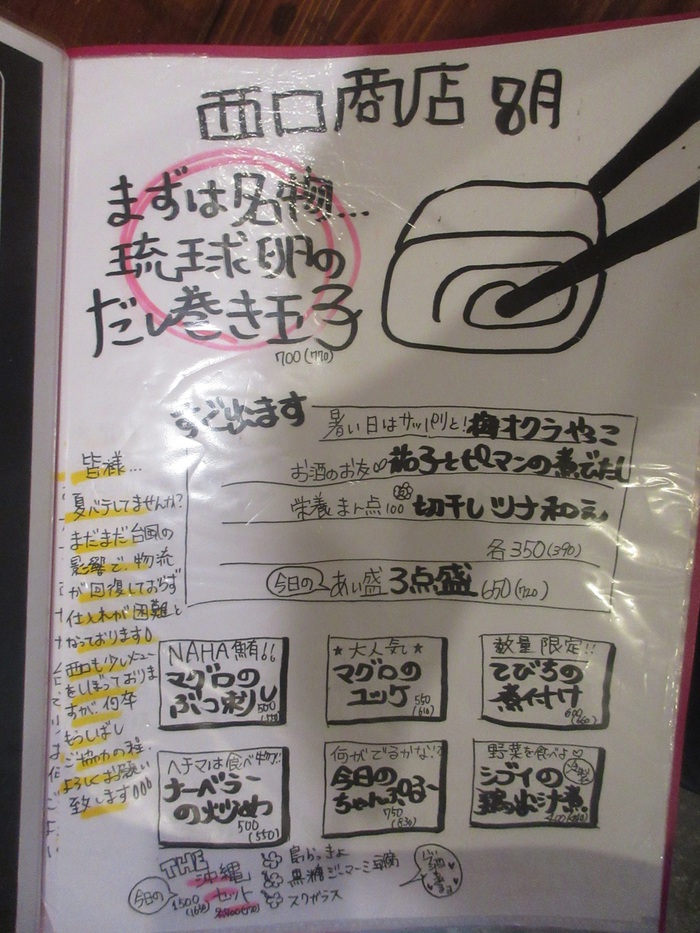 西口商店 8月
まずは名物...
琉球卵の
だし巻き玉子
700(770)
すぐ出ます
暑い日はサッパリと!梅オクラやっこ
お酒のお友♡茄子とピーマンの煮でだし
栄養まん点100 切干しツナ和え
各350(390)
今日の あい盛 3点盛 650(720)
皆様...
夏バテしてませんか?
まだまだ台風の
影響で、物流
が回復しておらず
仕入れが困難と
なっております
西口も少しメニュー
をしぼっておりま
すが 何卒
もうしばし
ご協力の程、
よろしくお願い
致します
NAHA鮪!!
マグロの
ぶつ刺し
500
★大人気★
マグロの
ユッケ
550
数量限定!!
てびちの
煮付け
600(660)
ヘチマは食べ物!!
ナーベラー
の炒め
500
(550)
何がでるかな?
今日の
ちゃんぷるー
750
(830)
野菜を食べよ♡
シブイの
鶏出汁煮
THE
沖縄
セット
今日の
1500
島らっきょ
黒糖ジーマーミ豆腐
スクガラス